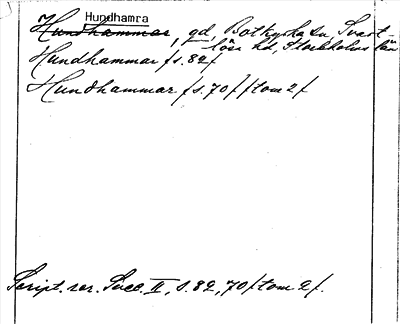 Hundhamra
Hundhammar, gd, Botkyrka sn, Svart-
lösa hd, Stockholms län
Hundhammar /s. 82/
Hundhammar /s. 70/ /tom 2/
Script. rer. Suec. II, s. 82, 70 /tom 2/.